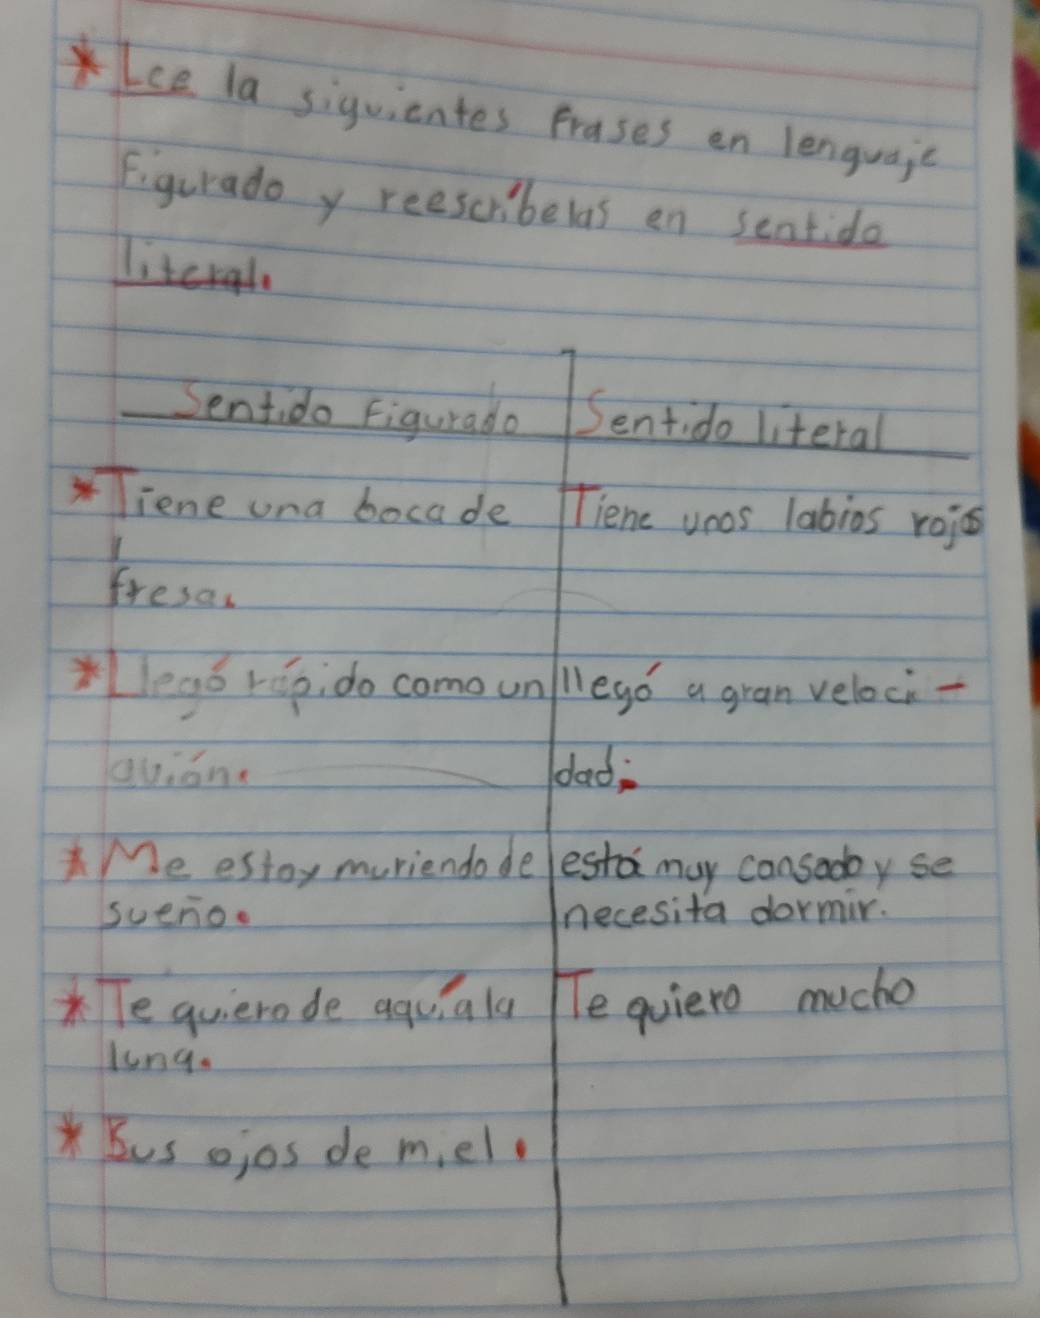 * Lee la siguientes frases en lenguaje
figurado y reescríbelas en sentido
literal.
Sentido Figurado Sentido literal
* Tiene una boca de Tiene unos labios rojos
fresa.
* Llegó rápido como un llegó a gran veloci-
avión. dad.
* Me estoy muriendo de está muy cansado y se
sueño. necesita dormir.
* Te quiero de aquí a la Te quiero mucho
luna.
* Sus ojos de miel.